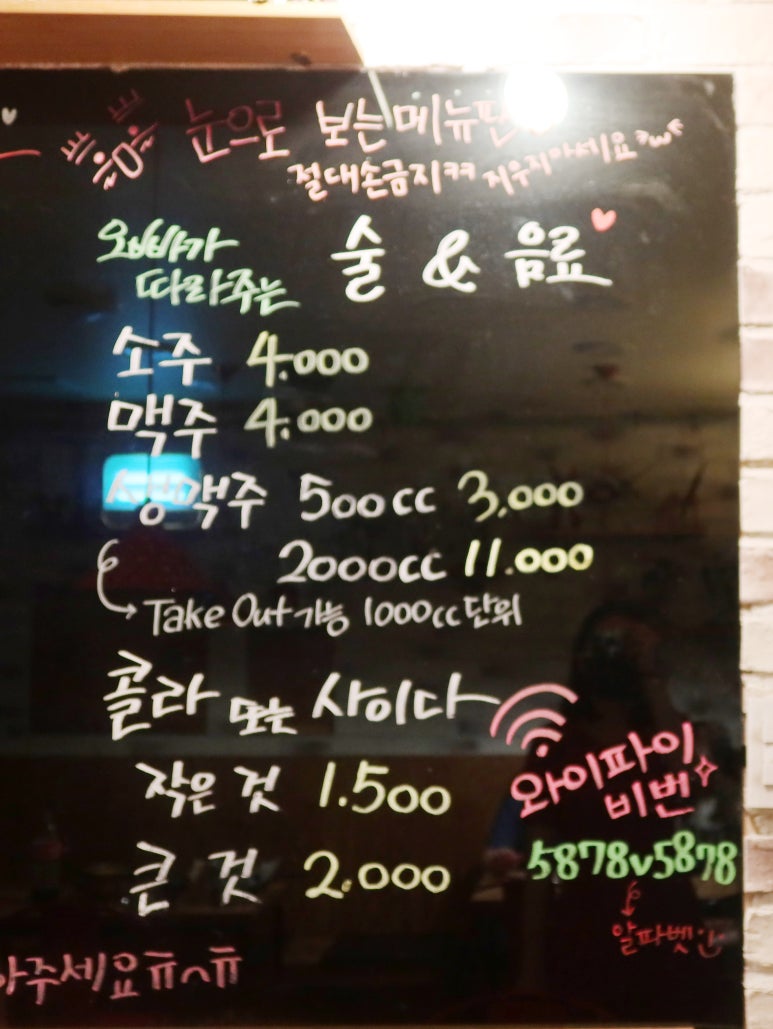 눈으로 보는 메뉴판
절대손금지ㅋㅋ 지우지마세요 >w<
오빠가
따라주는
술 & 음료
소주 4.000
맥주 4.000
생맥주 500cc 3,000
2000cc 11.000
Take Out 가능 1000cc단위
콜라 또는 사이다
작은 것 1.500
큰 것 2.000
와이파이
비번
5878v5878
알파벳
아주세요ㅠㅅㅠ